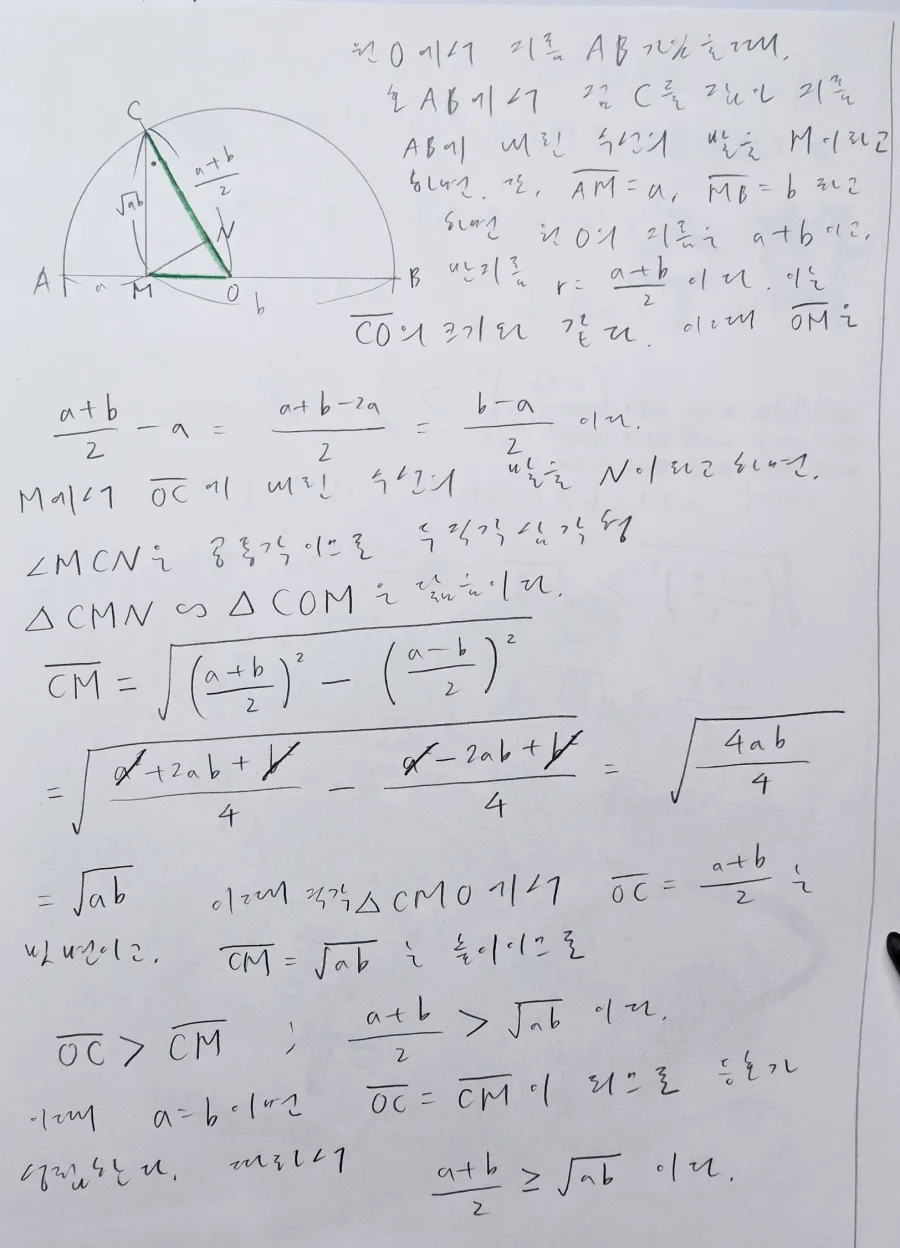 원 O에서 지름 AB가 있을 때,
호 AB에서 점 C를 잡아 지름
AB에 내린 수선의 발을 M이라고
하면. 단, \overline{AM} = a, \overline{MB} = b 라고
하면 원 O의 지름은 a+b 이고,
반지름 r = \frac{a+b}{2} 이다. 이는
\overline{CO}의 크기와 같다. 이때 \overline{OM}은
C
\frac{a+b}{2}
\sqrt{ab}
N
A a M O b B
\frac{a+b}{2} - a = \frac{a+b-2a}{2} = \frac{b-a}{2} 이다.
M에서 \overline{OC}에 내린 수선의 발을 N이라고 하면,
∠MCN은 공통각이므로 두 직각삼각형
△CMN ∽ △COM은 닮음이다.
\overline{CM} = \sqrt{(\frac{a+b}{2})^2 - (\frac{a-b}{2})^2}
= \sqrt{\frac{a^2+2ab+b^2}{4} - \frac{a^2-2ab+b^2}{4}} = \sqrt{\frac{4ab}{4}}
= \sqrt{ab} 이때 직각△CMO에서 \overline{OC} = \frac{a+b}{2} 는
빗변이고, \overline{CM} = \sqrt{ab} 는 높이이므로
\overline{OC} > \overline{CM} ; \frac{a+b}{2} > \sqrt{ab} 이다.
이때 a=b이면 \overline{OC} = \overline{CM}이 되므로 등호가
성립한다. 따라서 \frac{a+b}{2} ≥ \sqrt{ab} 이다.